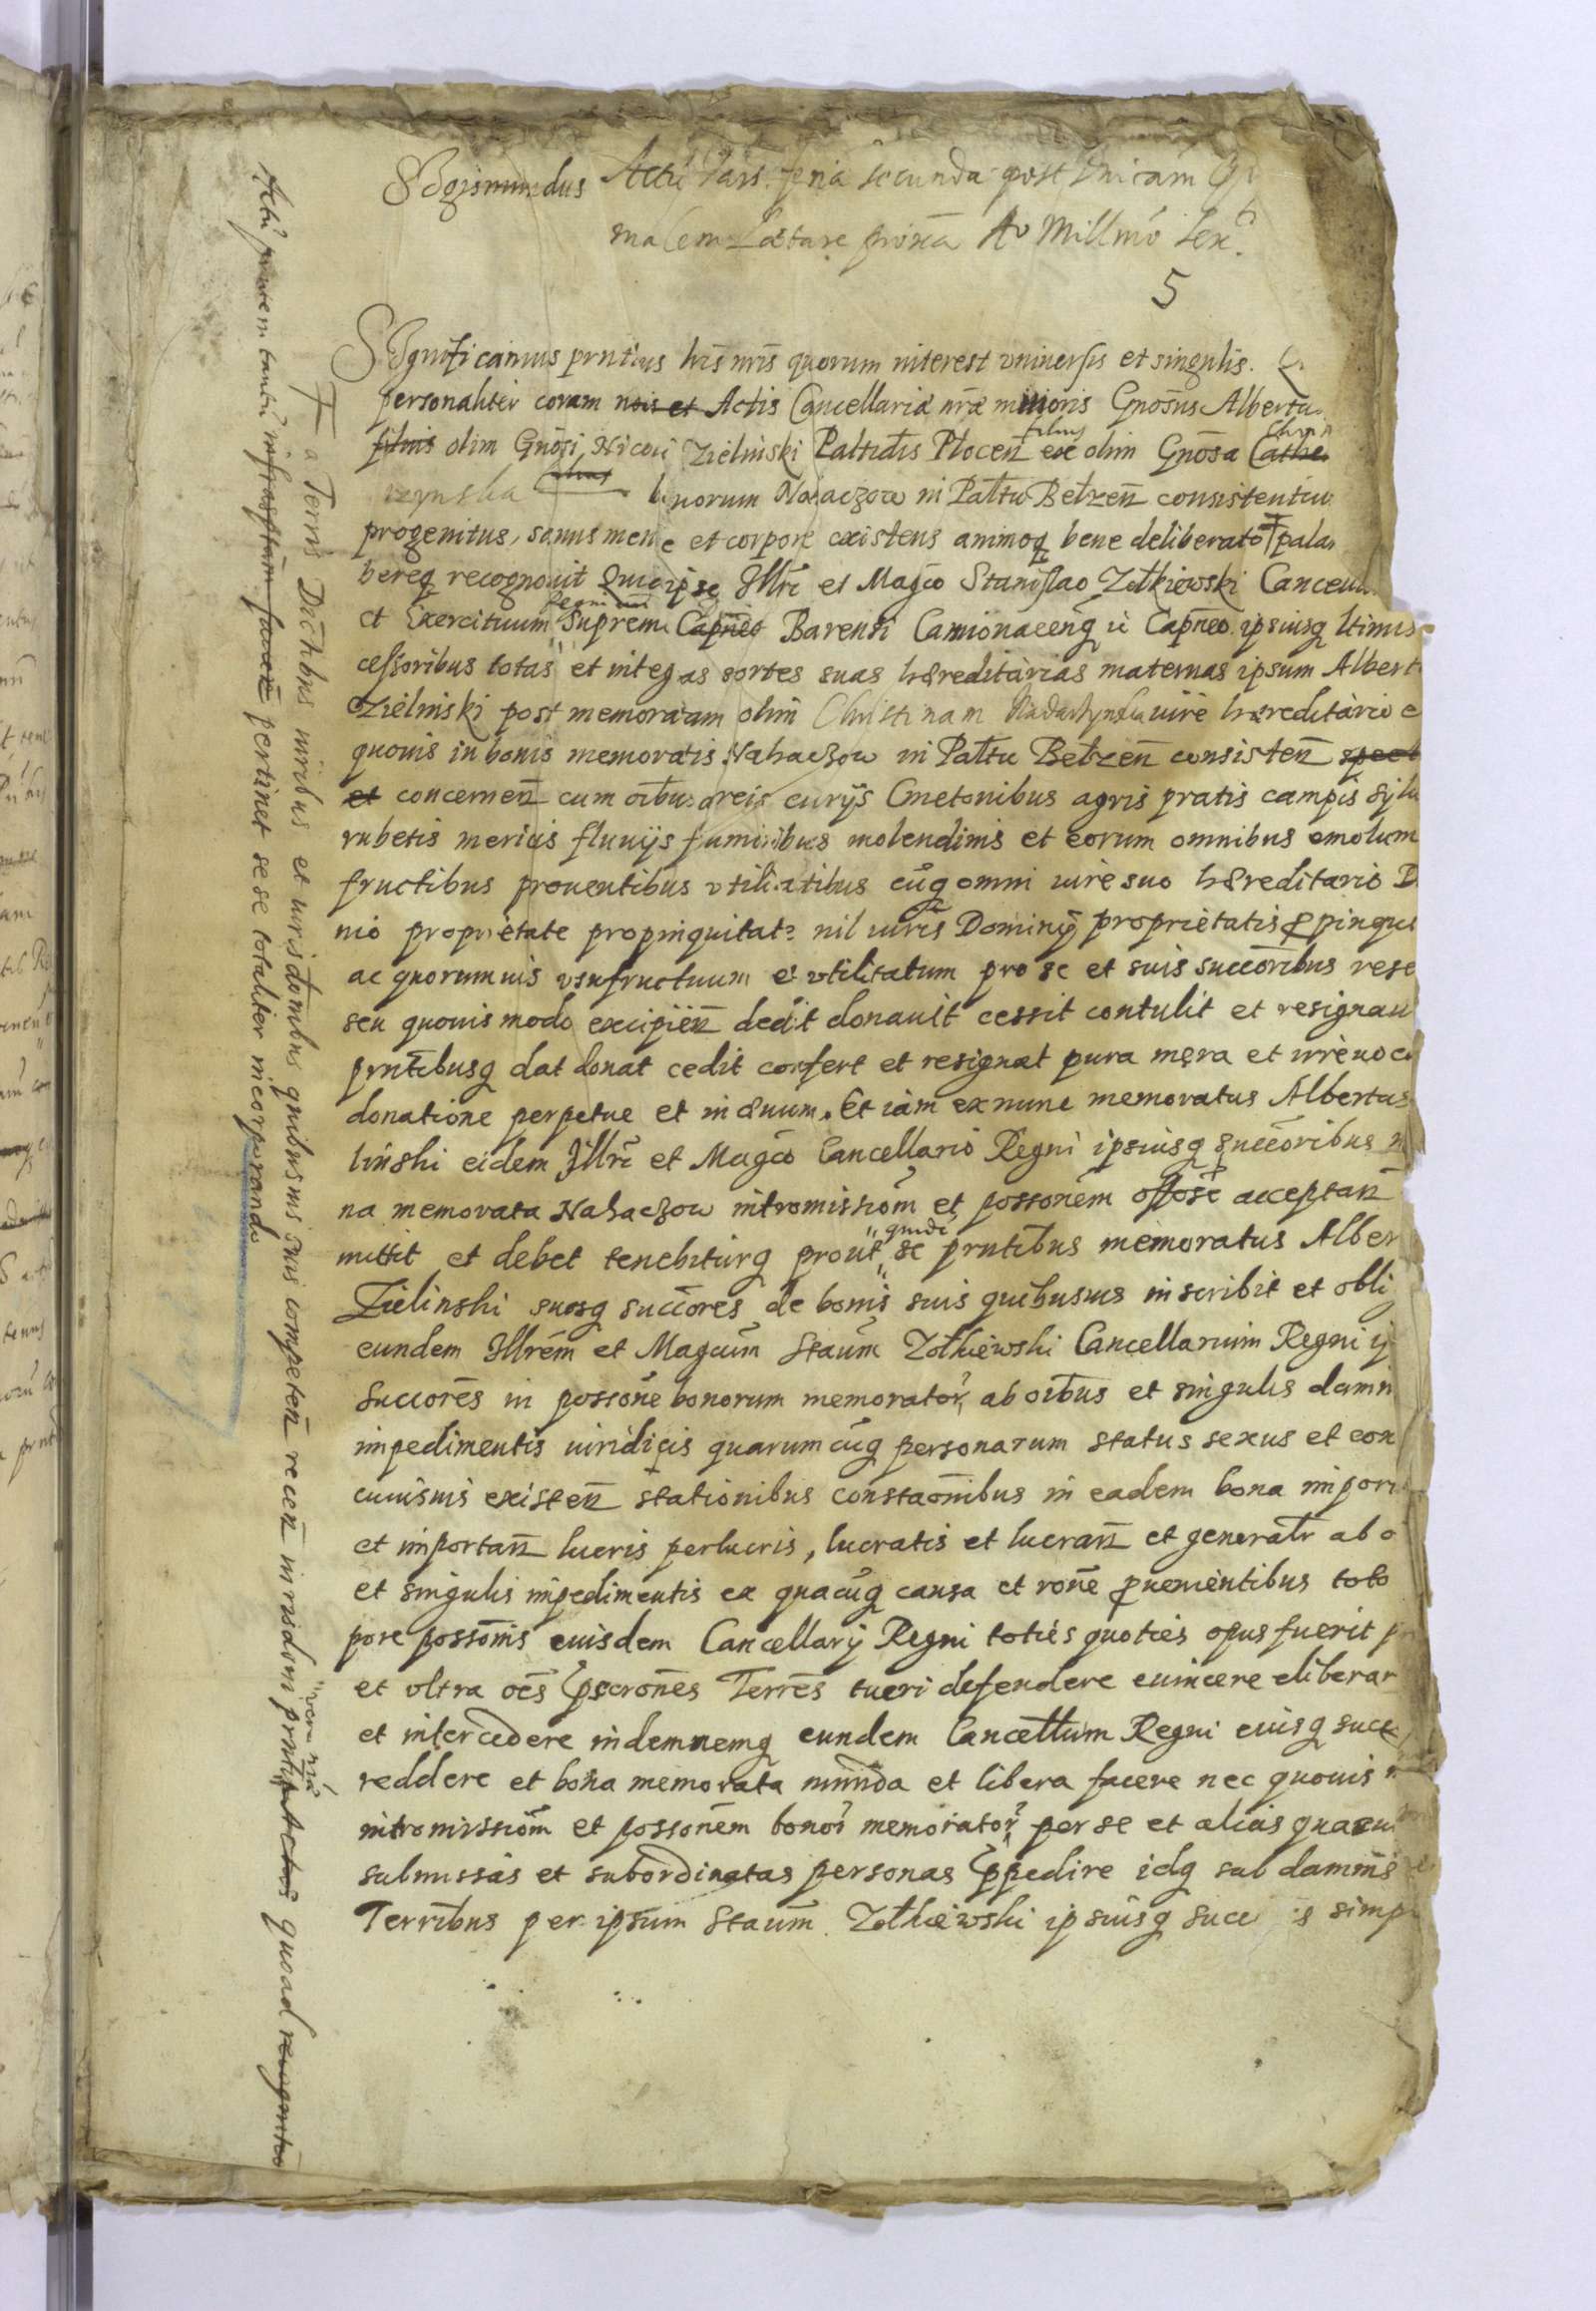 Sigismundus Actũ Vars. feria secunda post Dnicam
malem Lætare proxã Aº Millmó Sexᵗ
5
Significamus prntibus lris nris quorum interest vniuersis et singulis. Q
personaliter coram nois et Actis Cancellariæ nræ minoris Gnosus Albertu
filius olim Gnosi Nicolai Zielinski Palttidis Plocen filius exe olim Gnosa Cathe
bonorum Nahaczow in Palttu Betzen consistentiu
progenitus, sanus mente et corpore existens animoq bene deliberato † pala
bereq recognouit Quia ipse Illri et Magco Stanislao Zołkiewski Cancell
et Exercituum Regni Supremi Capneo Barensi Camionacenq ii Capneo ipsiusq ltimis
cessoribus totas et integras sortes suas hæreditarias maternas ipsum Albert
Zielinski post memoratam olim Christinam Nadarzynska iure hæreditario e
quouis in bonis memoratis Nahaczow in Palttu Betzen consisten spect
et concernen cum oibus areis curijs Cmetonibus agris pratis campis sylu
rubetis mericis fluuijs fluminibus molendinis et eorum omnibus emolum
fructibus prouentibus vtilitatibus cũq omni iure suo hæreditario D
nio proprietate propinquitate nil iuris Dominij proprietatis ppinqui
ac quorumuis vsufructuum et vtilitatum pro se et suis succoribus rese
seu quouis modo excipien dedit donauit cessit contulit et resignaui
prntibusq dat donat cedit confert et resignat pura mera et irreuoca
donatione perpetue et in æuum. Et iam ex nunc memoratus Albertus
linski eidem Illri et Magco Cancellario Regni ipsiusq succoribus
na memorata Nahaczow intromissiom et possonem offose acceptan
mittit et debet tenebiturq prout quidẽ se prntibus memoratus Alber
Zielinski suosq succores de bonis suis quibusuis inscribit et obli
eundem Illrem et Magcum Staum Zołkiewski Cancellarium Regni ij
Succores in possone bonorum memorator, ab oibus et singulis damn
impedimentis iuridicis quarumcũq personarum status sexus et con
cuiusuis existen stationibus constaonibus in eadem bona impor
et importan lucris perlucris, lucratis et lucran et generatr ab o
et singulis impedimentis ex quacũq causa et rone puenientibus toto
pore possonis eiusdem Cancellarij Regni toties quoties opus fuerit p
et vltra oes pscrones Terres tueri defendere euincere eliberar
et intercedere indemnemq eundem Cancellum Regni eiusq succ
reddere et bona memorata munda et libera facere nec quouis
intromissiom et possonem bonor memorator, per se et alias quacu
submissas et subordinatas personas ppedire idq sub damnis
Terribus per ipsum Staum Zołkiewski ipsiusq succ s simp
† a Terris Dictibus iuribus et iurisdonibus quibusuis suis competen recen in iurisdom prntiũ Actus quoad recognitõ
Actũ prntem tantũ infrasptam pertinet sese totaliter incorporando